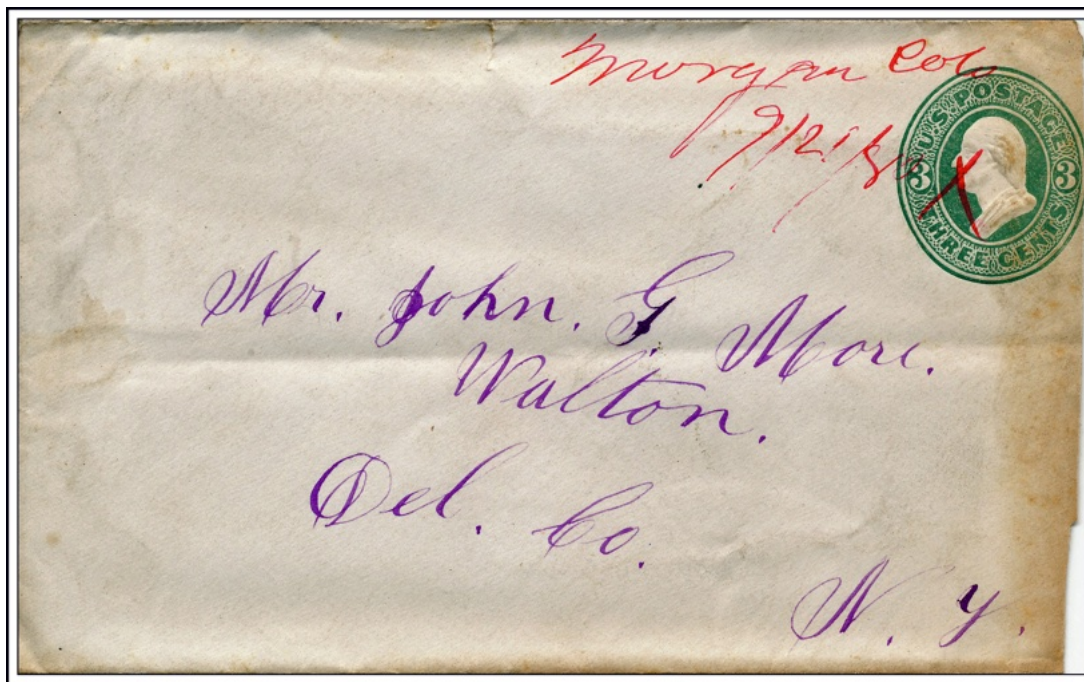 Morgan Colo
9/21/80 X
U.S. POSTAGE
3 3
THREE CENTS
Mr. John. G. More.
Walton.
Del. Co.
N. Y.